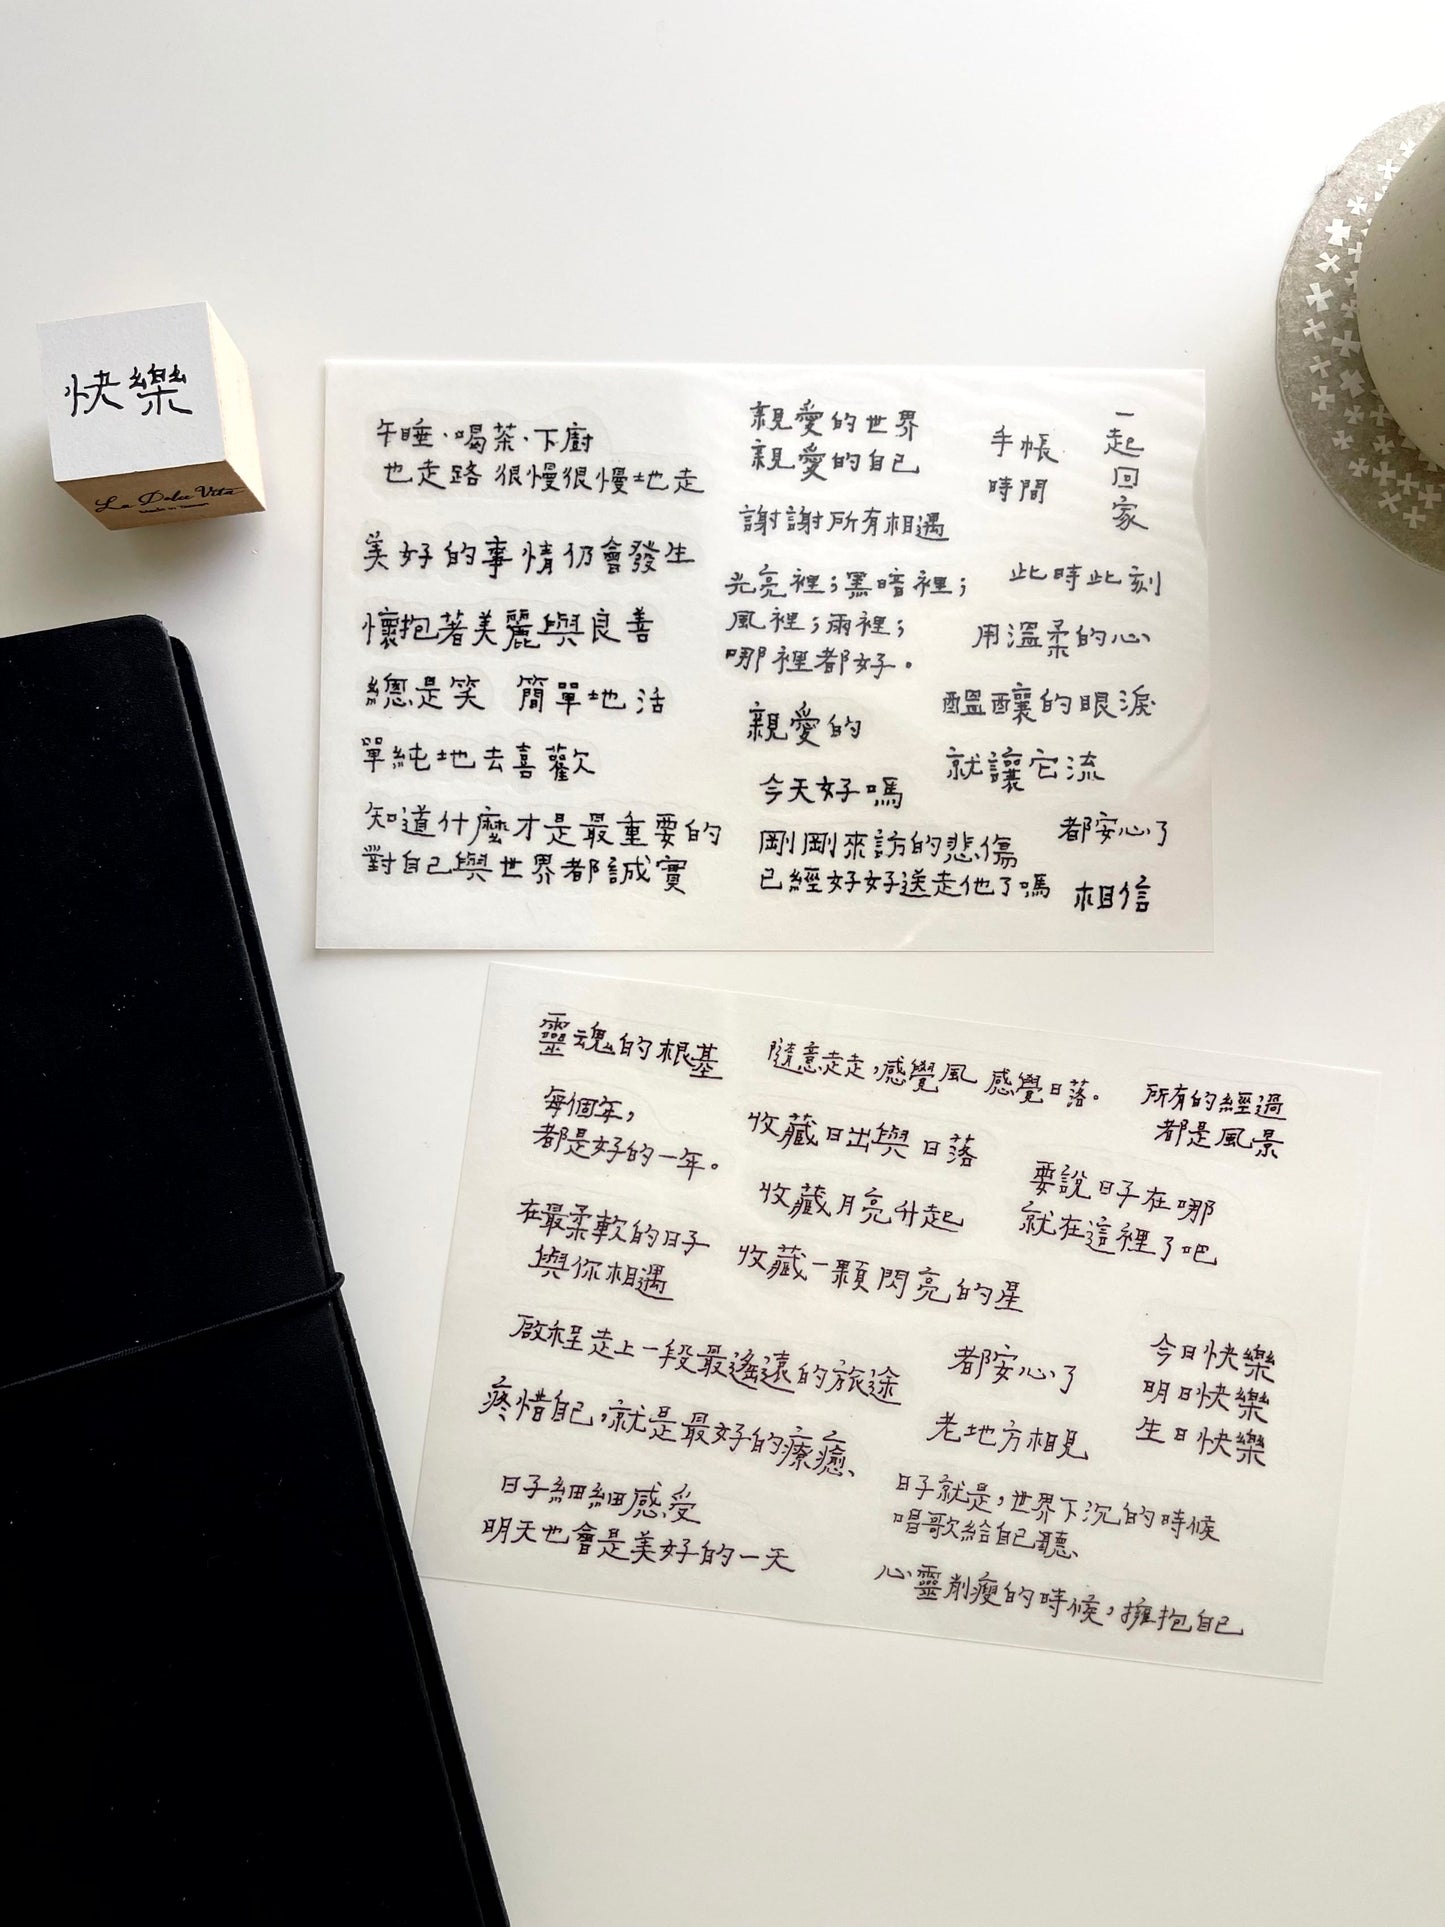 快樂
La Dolce Vita
Made in Taiwan
午睡、喝茶、下廚
也走路 很慢很慢地走
美好的事情仍會發生
懷抱著美麗與良善
總是笑
簡單地活
單純地去喜歡
知道什麼才是最重要的
對自己與世界都誠實
親愛的世界
親愛的自己
謝謝所有相遇
光亮裡；黑暗裡；
風裡；雨裡；
哪裡都好。
親愛的
今天好嗎
剛剛來訪的悲傷
已經好好送走他了嗎
手帳
時間
一起回家
此時此刻
用溫柔的心
醞釀的眼淚
就讓它流
都安心了
相信
靈魂的根基
每個年，
都是好的一年。
在最柔軟的日子
與你相遇
啟程走上一段最遙遠的旅途
疼惜自己，就是最好的療癒、
日子細細感受
明天也會是美好的一天
隨意走走，感覺風 感覺日落。
收藏日出與日落
收藏月亮升起
收藏一顆閃亮的星
都安心了
老地方相見
日子就是，世界下沉的時候
唱歌給自己聽、
心靈削瘦的時候，擁抱自己
所有的經過
都是風景
要說日子在哪
就在這裡了吧
今日快樂
明日快樂
生日快樂